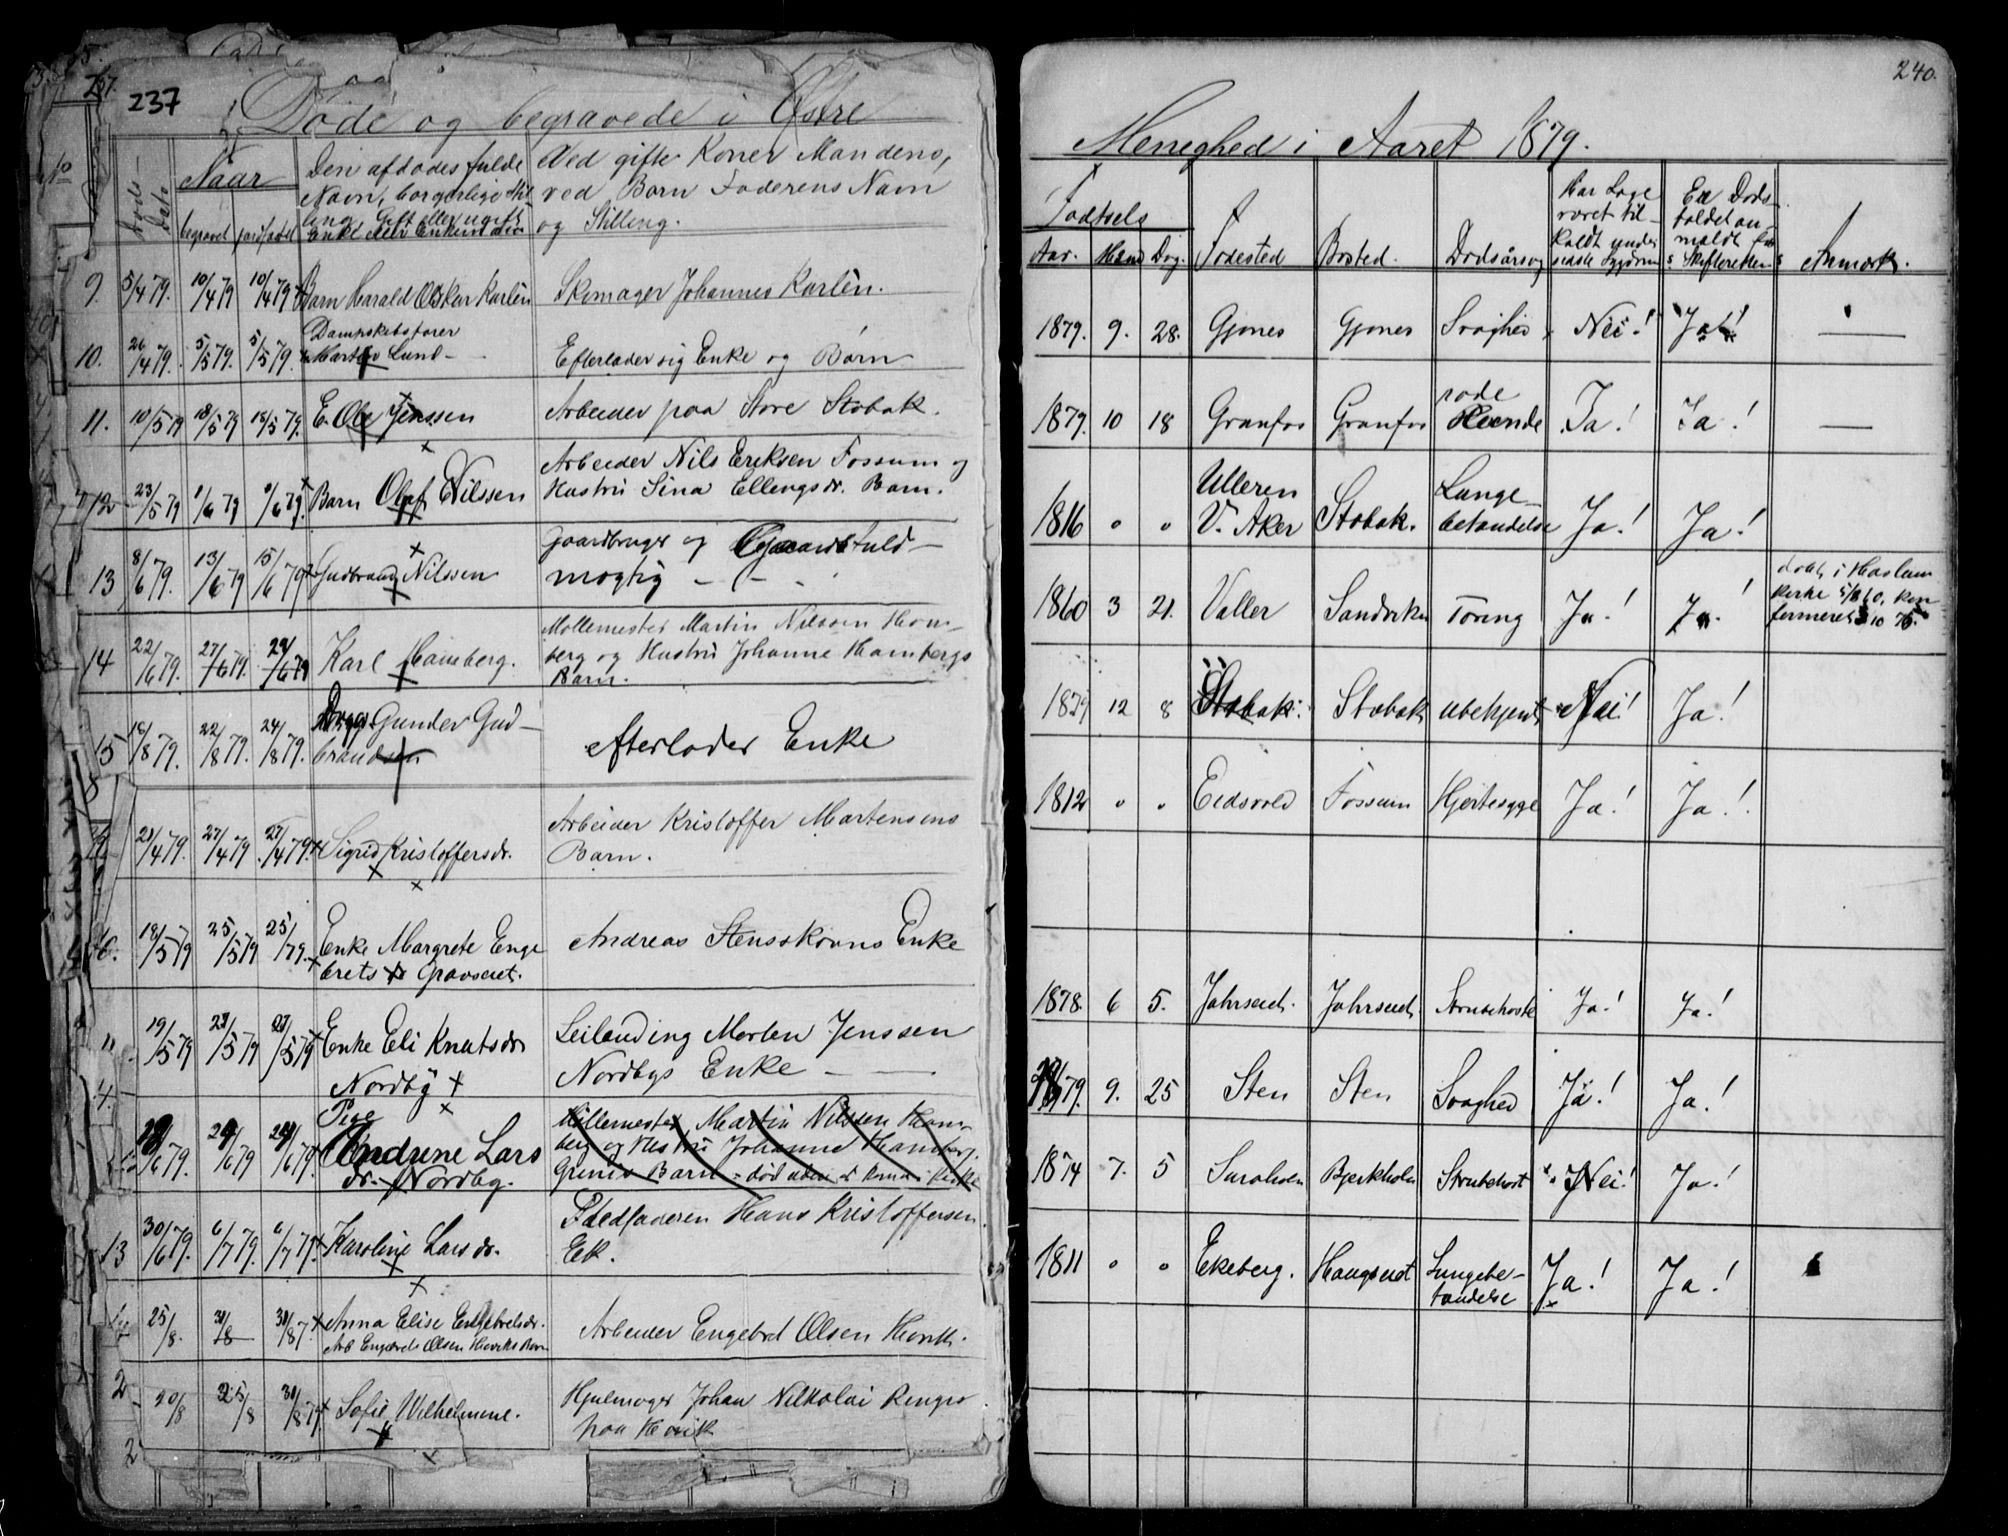 237
Døde og begravede i Østre
No
Døds-
Dato
Naar
begravet
jordfæstet
Den afdødes fulde
Navn, borgerlige Stil
ling, Gift eller ugift
Enke eller Enkemand
Ved gifte Koner Mandens,
ved Børn Faderens Navn
og Stilling.
9. 5/4 79. 10/4 79 10/4 79 Barn Harald Oskar Karlèn Skomager Johannes Karlèn.
10. 26/4 79. 5/5 79. 5/5 79. Dampskibsfører
Lund - Efterlader sig Enke og Børn
11. 10/5 79 18/5 79 18/5 79. E. Ole Jenssen Arbeider paa Store Stabæk.
12 23/5 79 1/6 79 /6 79. Barn Olaf Nilssen Arbeider Nils Eriksen Fossum og
Hustru Sina Ellingsdr. Barn.
13 8/6 79. 13/6 79 15/6 79 Gudbrand Nilssen Gaardbruger og Gaardsfuld-
mægtig - -
14 22/6 79. 27/6 79. 29/6 79 Karl Hamberg. Møllemester Martin Nilssen Ham-
berg og Hustru Johanne Hambergs
Barn.
15 18/8 79. 22/8 79. 24/8 79. Gunder Gud-
brandsen efterlader Enke
21/4 79. 27/4 79 27/4 79. Sigrid Kristoffersdr. Arbeider Kristoffer Martensens
Barn.
10. 18/5 79 25/5 79 25/79. Enke Margrete Enge
brets dr Gravseiet. Andreas Stensskovns Enke
11 19/5 79 23/5 79 27/5 79 Enke Eli Knutsdr
Nordby Leilending Morten Jenssen
Nordbys Enke - -
/6 79. 29/6 79 29/6 79. Pige
Andrine Lars
dr. Nordby. Møllemester Martin Nilssen Ham-
berg og Hustru Johanne Hamberg.
Grinis Barn - død uden
13 30/6 79. 6/7 79. 6/7 79 Karoline Larsdr. Fledføderen Hans Kristoffersen
Ek.
25/8. 31/8 31/8 7. Anna Elise Engebretsdr.
Arb Engebrets Olsen Høviks Barn Arbeider Engebret Olsen Høvik.
2 20/8 25/8 31/8 79 Sofie Wilhelmine. Hjulmager Johan Nikolai Ringer
paa Høvik
2

240.
Menighed i Aaret 1879.
Fødsels
Aar. Maaned Dag. Fødested Bosted. Dødsårsag
Har Læge
været til-
kaldt under
sidste Sygdom
Er Døds-
faldet an-
meldt for
Skifteretten
Anmærk.
1879. 9. 28. Gjønes Gjønes Svaghed Nei! Ja!
1879. 10 18 Granfos Granfos røde
Hunde Ja! Ja!
1816 " " Ulleren
V. Aker Stabæk. Lunge-
betændelse Ja! Ja!
1860 3 21. Valler Sandviken Tæring Ja! Ja! døbt i Haslum
Kirke 5/8 60, kon
firmeret 3 10 75.
1879 12 8 Stabæk. Stabæk ubekjent Nei! Ja!
1812 " " Eidsvold Fossum Hjertesyge Ja! Ja!
1878. 6 5. Jahrseiet. Jahrseiet Strubehoste Ja! Ja!
1879. 9. 25 Sten Sten Svaghed Ja! Ja!
1874 7. 5 Saraholm Bjerkholm Strubehost Nei! Ja!
1811 " " Ekeberg. Haugseiet Lungebe-
tændelse Ja! Ja!